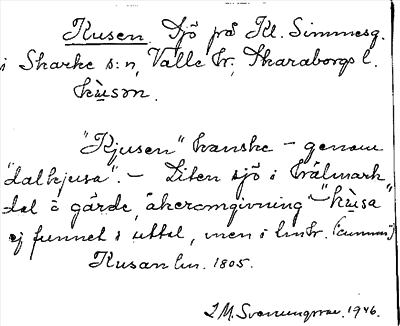 Kusen. Sjö på Kl. Simmesg.
i Skarke s:n, Valle hr, Skaraborgs l.
kùsən.
"Kjusen" kanske – genom
"dalkjusa". – Liten sjö i trälmark
tal å gärde, åkeromgivning – "kùsa"
ej funnet i uttal, men i hndr.
Kusan hn. 1805.
1946.